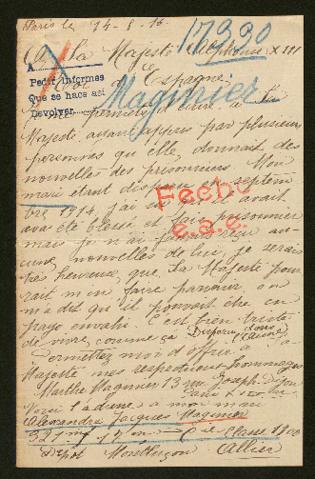 Paris le 14-8-16
17390
A Sa Majesté Alphonse XIII
Roi d'Espagne
A
Pedir informes
Que se hace así
Devolver
Maginier
permets d'écrire à
Majesté ayant appris par plusieurs
personnes qu'elle donnait des
nouvelles des prisonniers. Mon
mari étant disparu septem
bre 1914, j'ai su qu'il avait
été blessé et fait prisonnier
mais je n'ai jamais reçu au
cune nouvelles de lui, je serais
très heureuse que Sa Majesté pour
rait m'en faire parvenir on
m'a dit qu'il pouvait être en
pays envahi. C'est bien triste
de vivre comme ça Disparu dans l'Aisne
Permettez moi d'offrir à
Majesté mes respectueux hommages
Marthe Maginier 13 rue Joseph Dijon
Paris
Voici l'adresse a mon mari
Alexandre Jacques Maginier
321 classe 1900
Dépôt Montluçon Allier
Fecho
e.a.e.